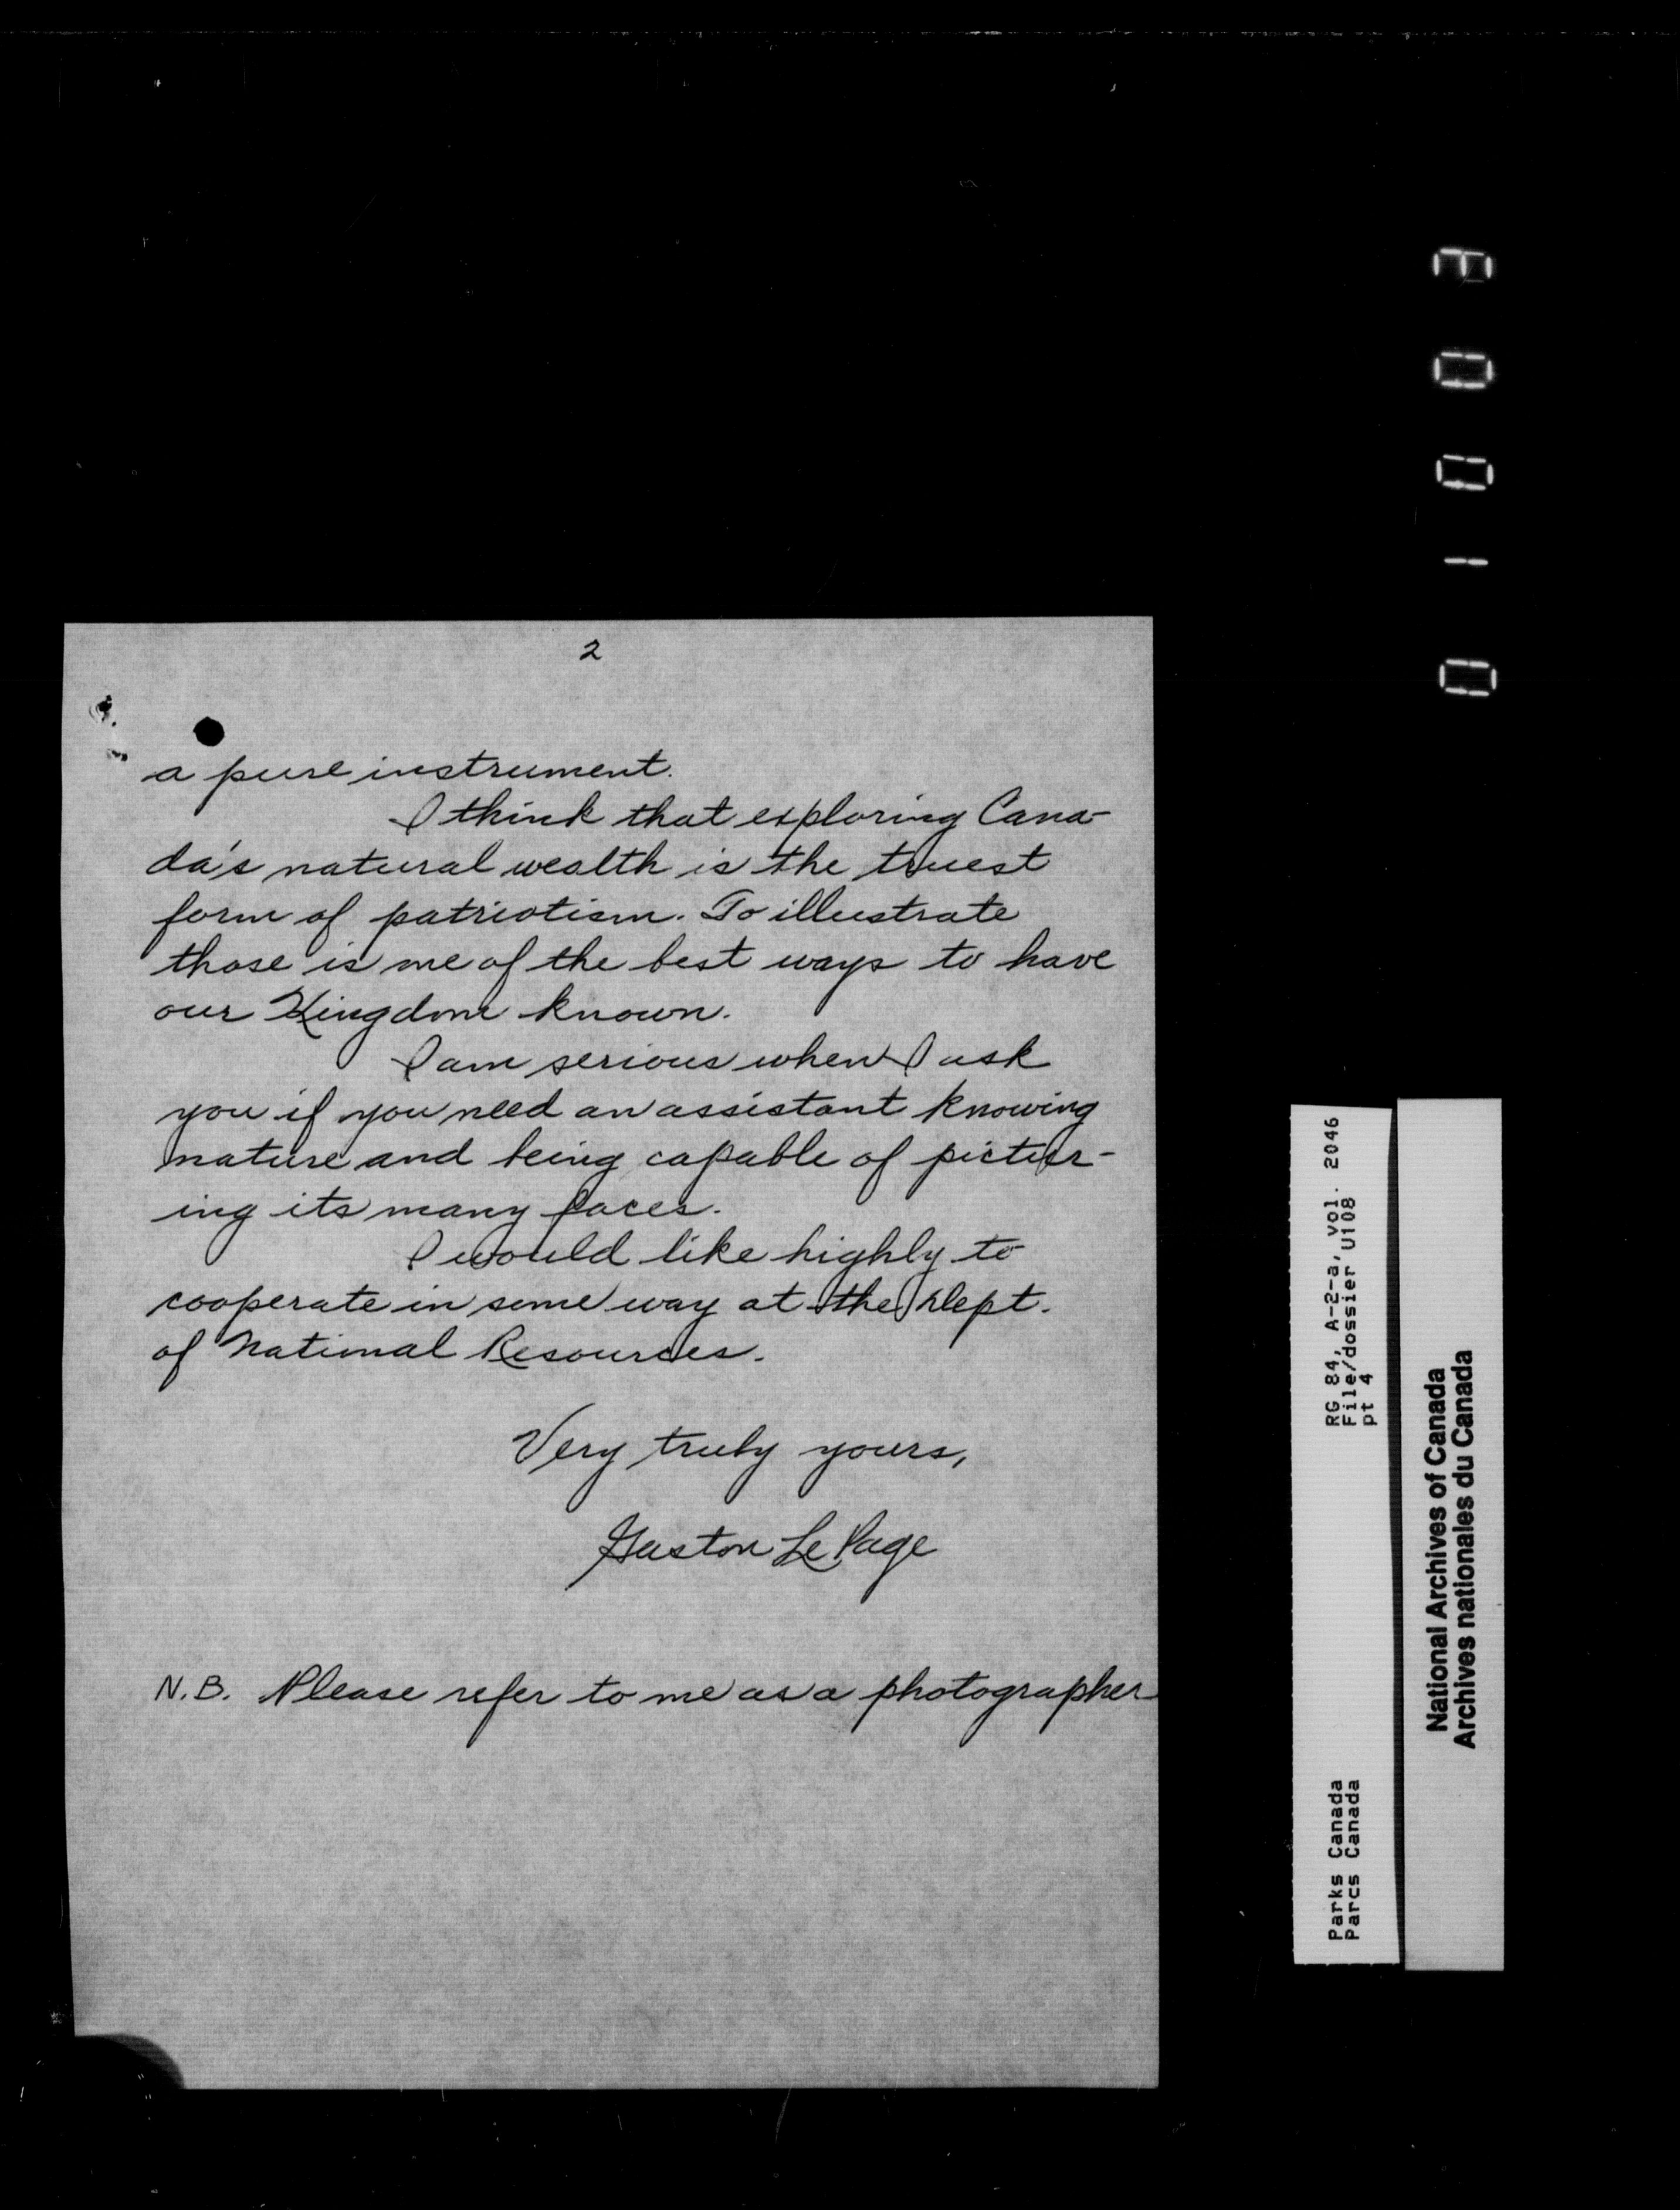 2
a pure instrument.
I think that exploring Cana-
da's natural wealth is the truest
form of patriotism. To illustrate
those is one of the best ways to have
our Kingdom known.
I am serious when I ask
you if you need an assistant knowing
nature and being capable of pictur-
ing its many faces.
I would like highly to
cooperate in some way at the Dept.
of National Resources.
Very truly yours,
Gaston LePage
N.B. Please refer to me as a photographer
RG 84, A-2-a, vol. 2046
File/dossier U108
pt 4
Parks Canada
Parcs Canada
National Archives of Canada
Archives nationales du Canada